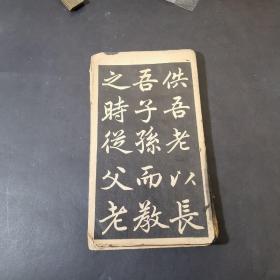 供吾老以長
吾子孫而教
之時從父老